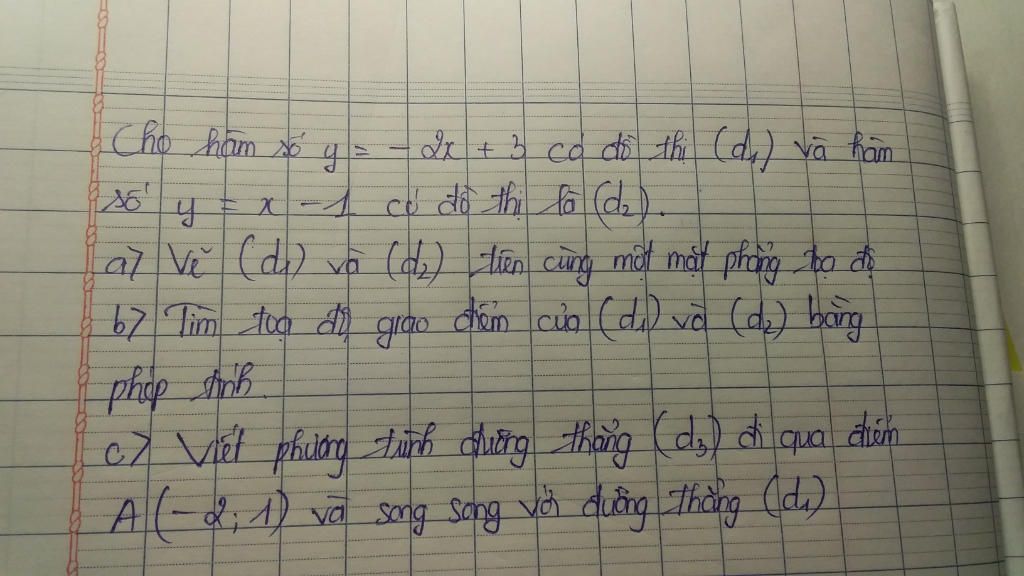 Cho hàm số y = - 2x + 3 có đồ thị (d₁) và hàm
số y = x - 1 có đồ thị là (d₂).
a) Vẽ (d₁) và (d₂) trên cùng một mặt phẳng tọa độ
b) Tìm toạ độ giao điểm của (d₁) và (d₂) bằng
phép tính.
c) Viết phương trình đường thẳng (d₃) đi qua điểm
A (-2; 1) và song song với đường thẳng (d₁)